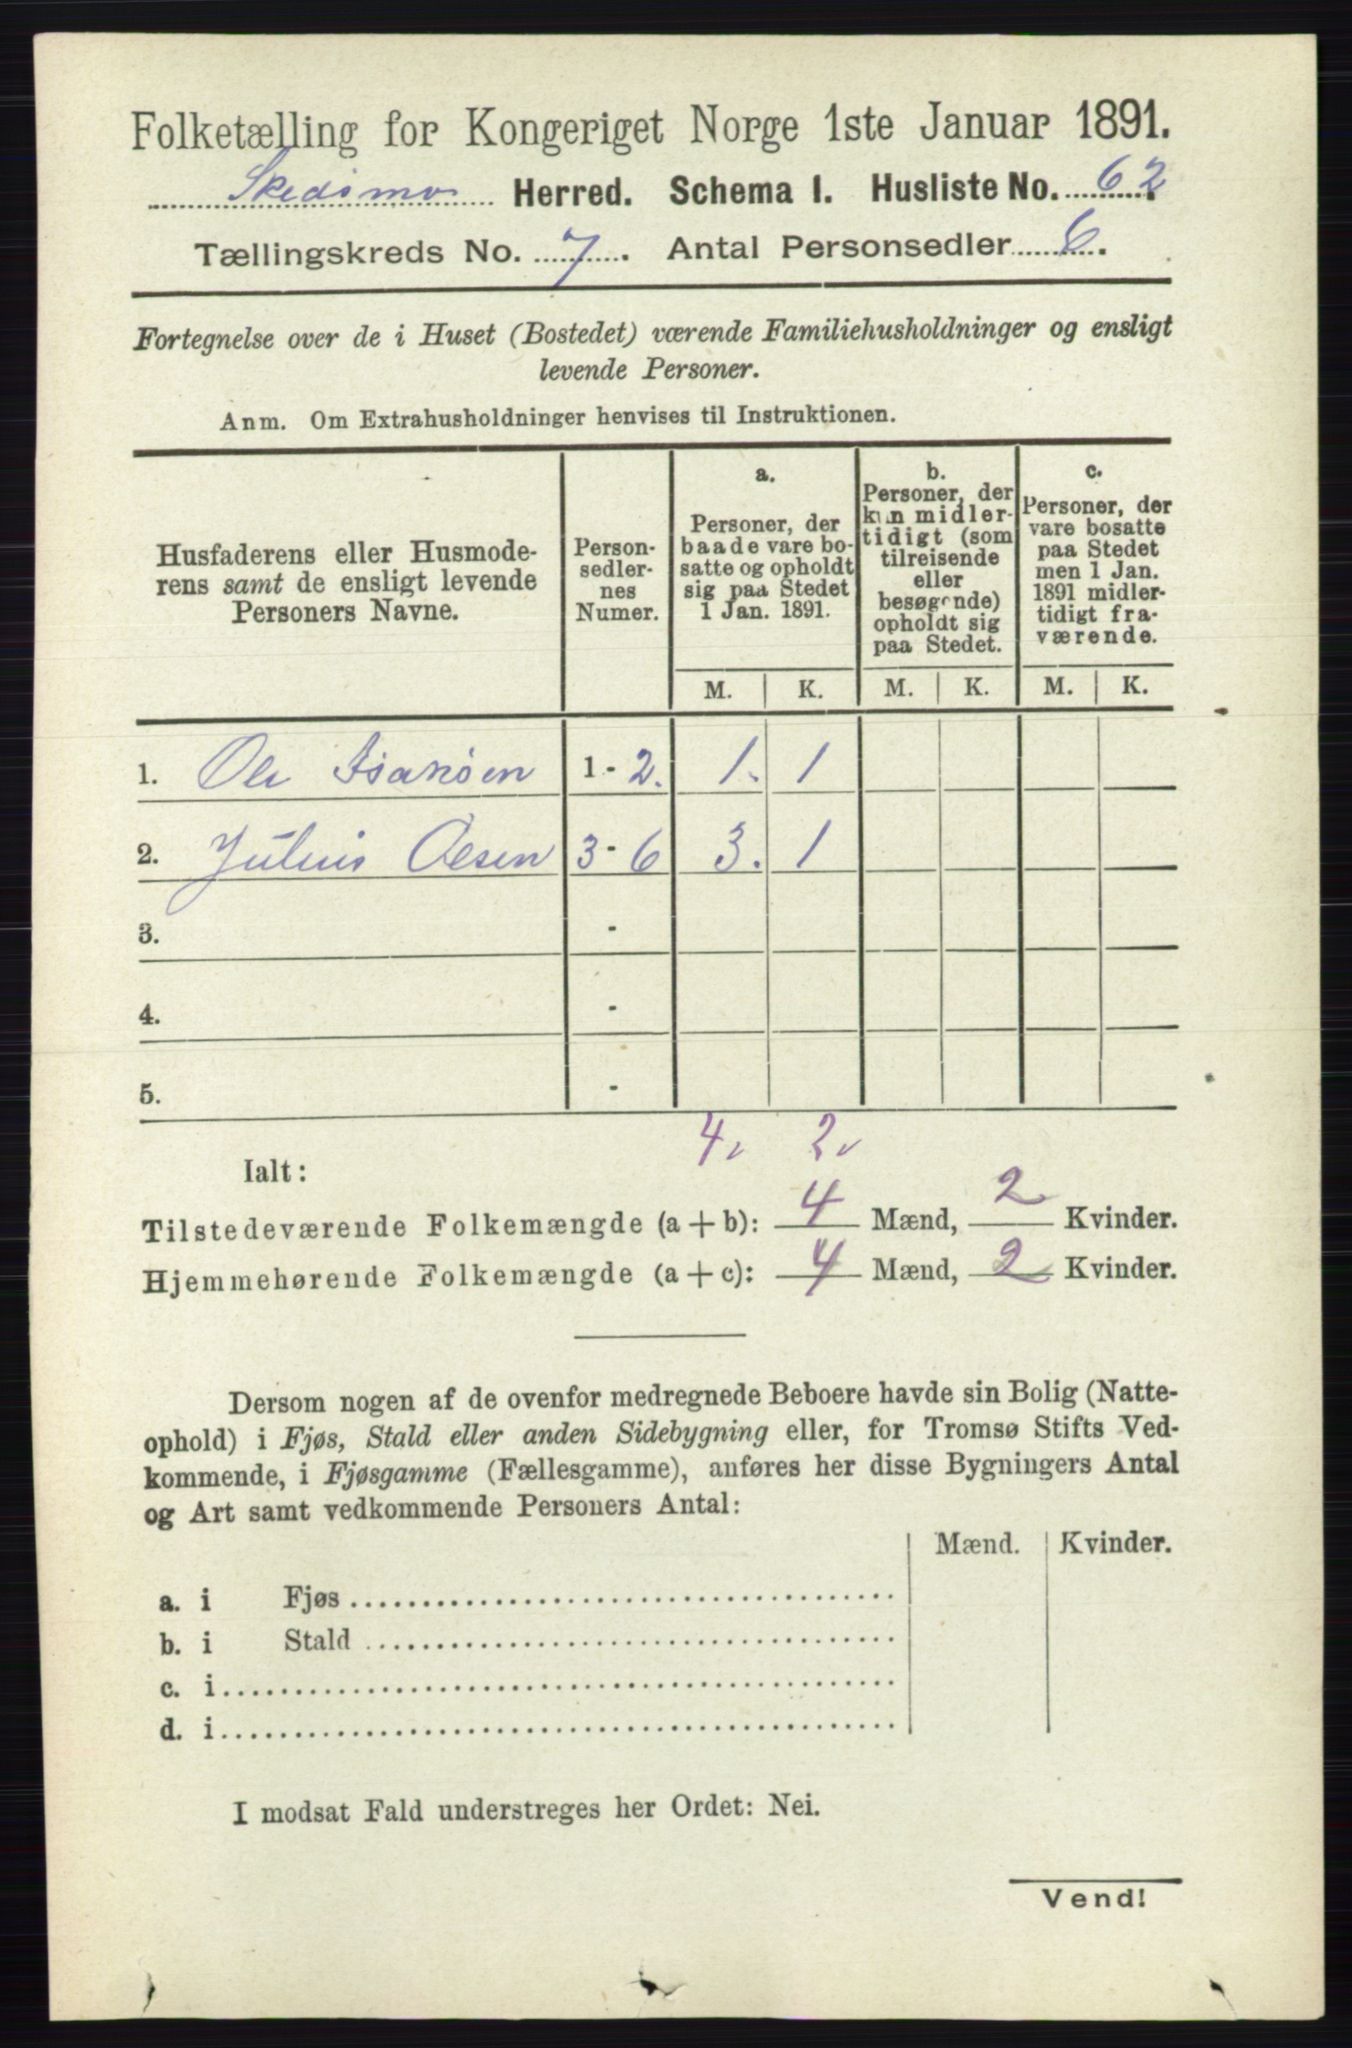 Folketælling for Kongeriget Norge 1ste Januar 1891.
Skedsmo Herred. Schema I. Husliste No. 62.
Tællingskreds No. 7. Antal Personsedler 6.
Fortegnelse over de i Huset (Bostedet) værende Familiehusholdninger og ensligt
levende Personer.
Anm. Om Extrahusholdninger henvises til Instruktionen.
Husfaderens eller Husmode-
rens samt de ensligt levende
Personers Navne.
Person-
sedler-
nes
Numer.
a.
Personer, der
baade vare bo-
satte og opholdt
sig paa Stedet
1 Jan. 1891.
b.
Personer, der
kun midler-
tidigt (som
tilreisende
eller
besøgende)
opholdt sig
paa Stedet.
c.
Personer, der
vare bosatte
paa Stedet
men 1 Jan.
1891 midler-
tidigt fra-
værende.
M. K. M. K. M. K.
1. Ole Isaksen 1-2. 1. 1
2. Julius Olsen 3-6 3. 1
3. -
4. -
5. -
4 2
Ialt:
Tilstedeværende Folkemængde (a+b): 4 Mænd, 2 Kvinder.
Hjemmehørende Folkemængde (a+c): 4 Mænd, 2 Kvinder.
Dersom nogen af de ovenfor medregnede Beboere havde sin Bolig (Natte-
ophold) i Fjøs, Stald eller anden Sidebygning eller, for Tromsø Stifts Ved-
kommende, i Fjøsgamme (Fællesgamme), anføres her disse Bygningers Antal
og Art samt vedkommende Personers Antal:
Mænd. Kvinder.
a. i Fjøs
b. i Stald
c. i
d. i
I modsat Fald understreges her Ordet: Nei.
Vend!